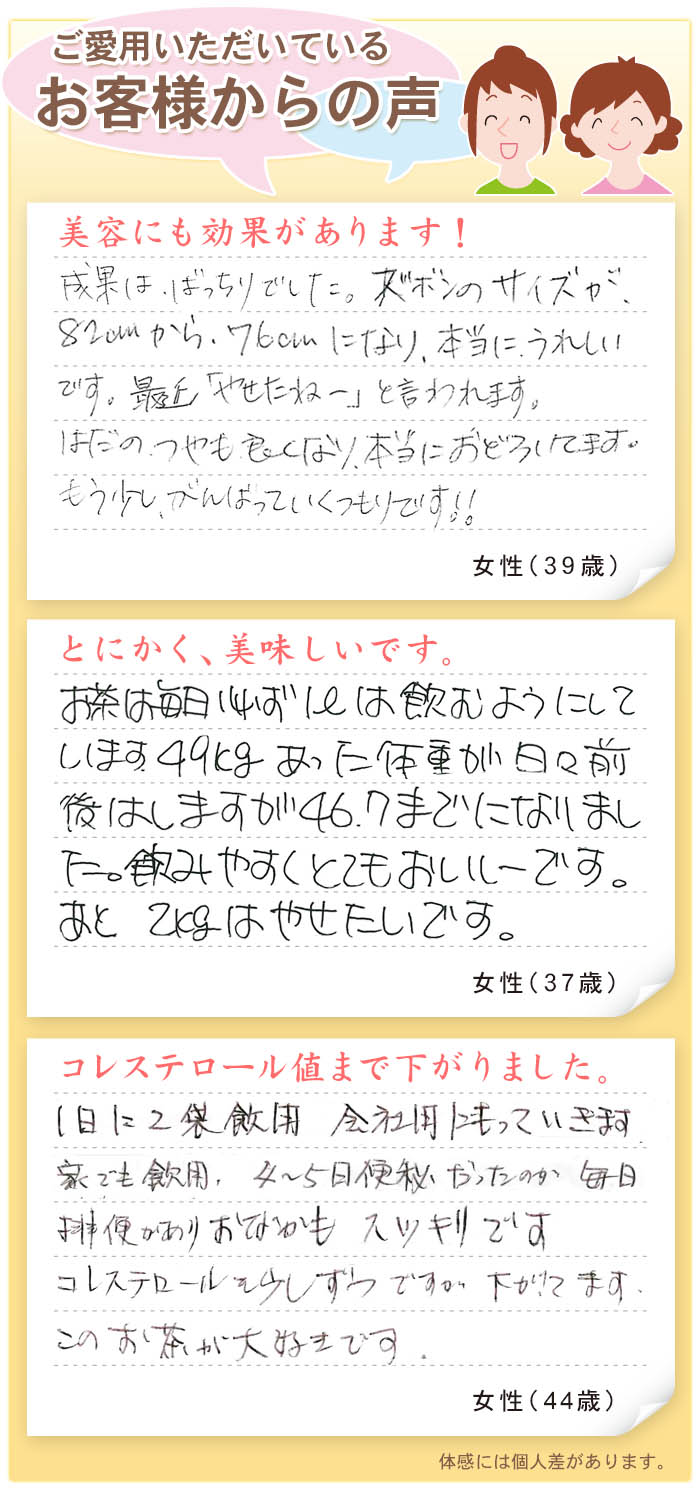 ご愛用いただいている
お客様からの声
美容にも効果があります！
成果は、ばっちりでした。ズボンのサイズが、
82cmから、76cmになり、本当に、うれしい
です。最近「やせたねー」と言われます。
はだの、つやも、良くなり、本当におどろいてます。
もう少し、がんばっていくつもりです!!
女性（39歳）
とにかく、美味しいです。
お茶は毎日必ず1ℓは飲むようにして
います。49kgあった体重が日々前
後はしますが46.7までになりまし
た。飲みやすくとてもおいしーです。
あと 2kgはやせたいです。
女性（37歳）
コレステロール値まで下がりました。
1日に2袋飲用 会社用にもっていきます
家でも飲用、4〜5日便秘だったのが 毎日
排便がありおなかも スッキリです
コレステロールも少しずつですが 下がってます.
このお茶が大好きです.
女性（44歳）
体感には個人差があります。